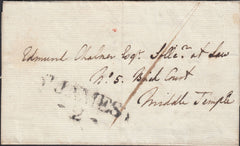 Edmund Chalmer Esqr. Sollr. at Law
No. 5. Brick Court
Middle Temple
ST JAMES S
2